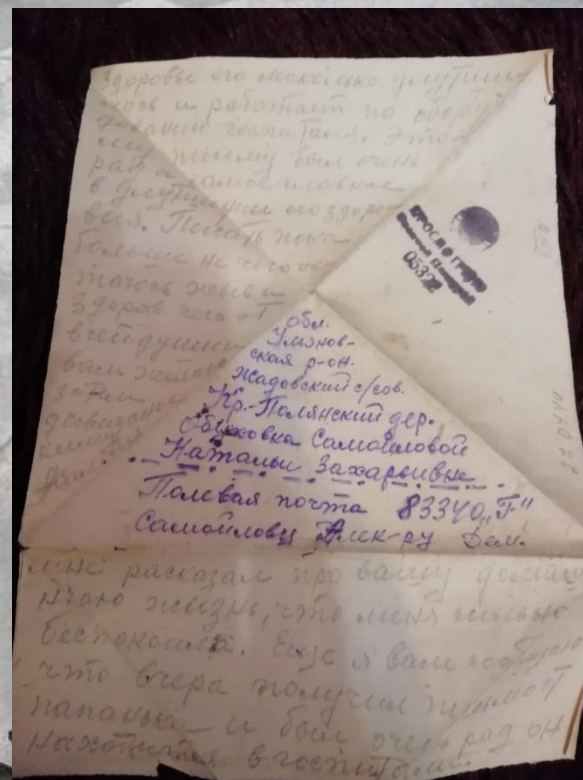 здоровье его несколько улутши-
лось и работает по обору-
дованию госпиталя. Этому
письму был очень
рад и самое главное
в улутшении его здоро-
вья. Писать пока
больше не чего ос
таюсь жив и
здоров чего от
всей души
вам желаю
затем
досвидание
ПРОСМОТРЕНО
Военной Цензурой
05322
обл.
Ульянов-
ская р-он.
Жадовский с/сов.
Кр.-Полянский дер.
Обуховка Самойловой
Натальи Захарьивне
Полевая почта 83340 „Г"
Самойловц Алек-ру Дем.
мне расказал про вашу домаш
нюю жизнь, что меня сильно
беспокоила. Еще я вам сообщаю
что вчера получил письмо от
папаньки и был очень рад он
находится в госпитали.